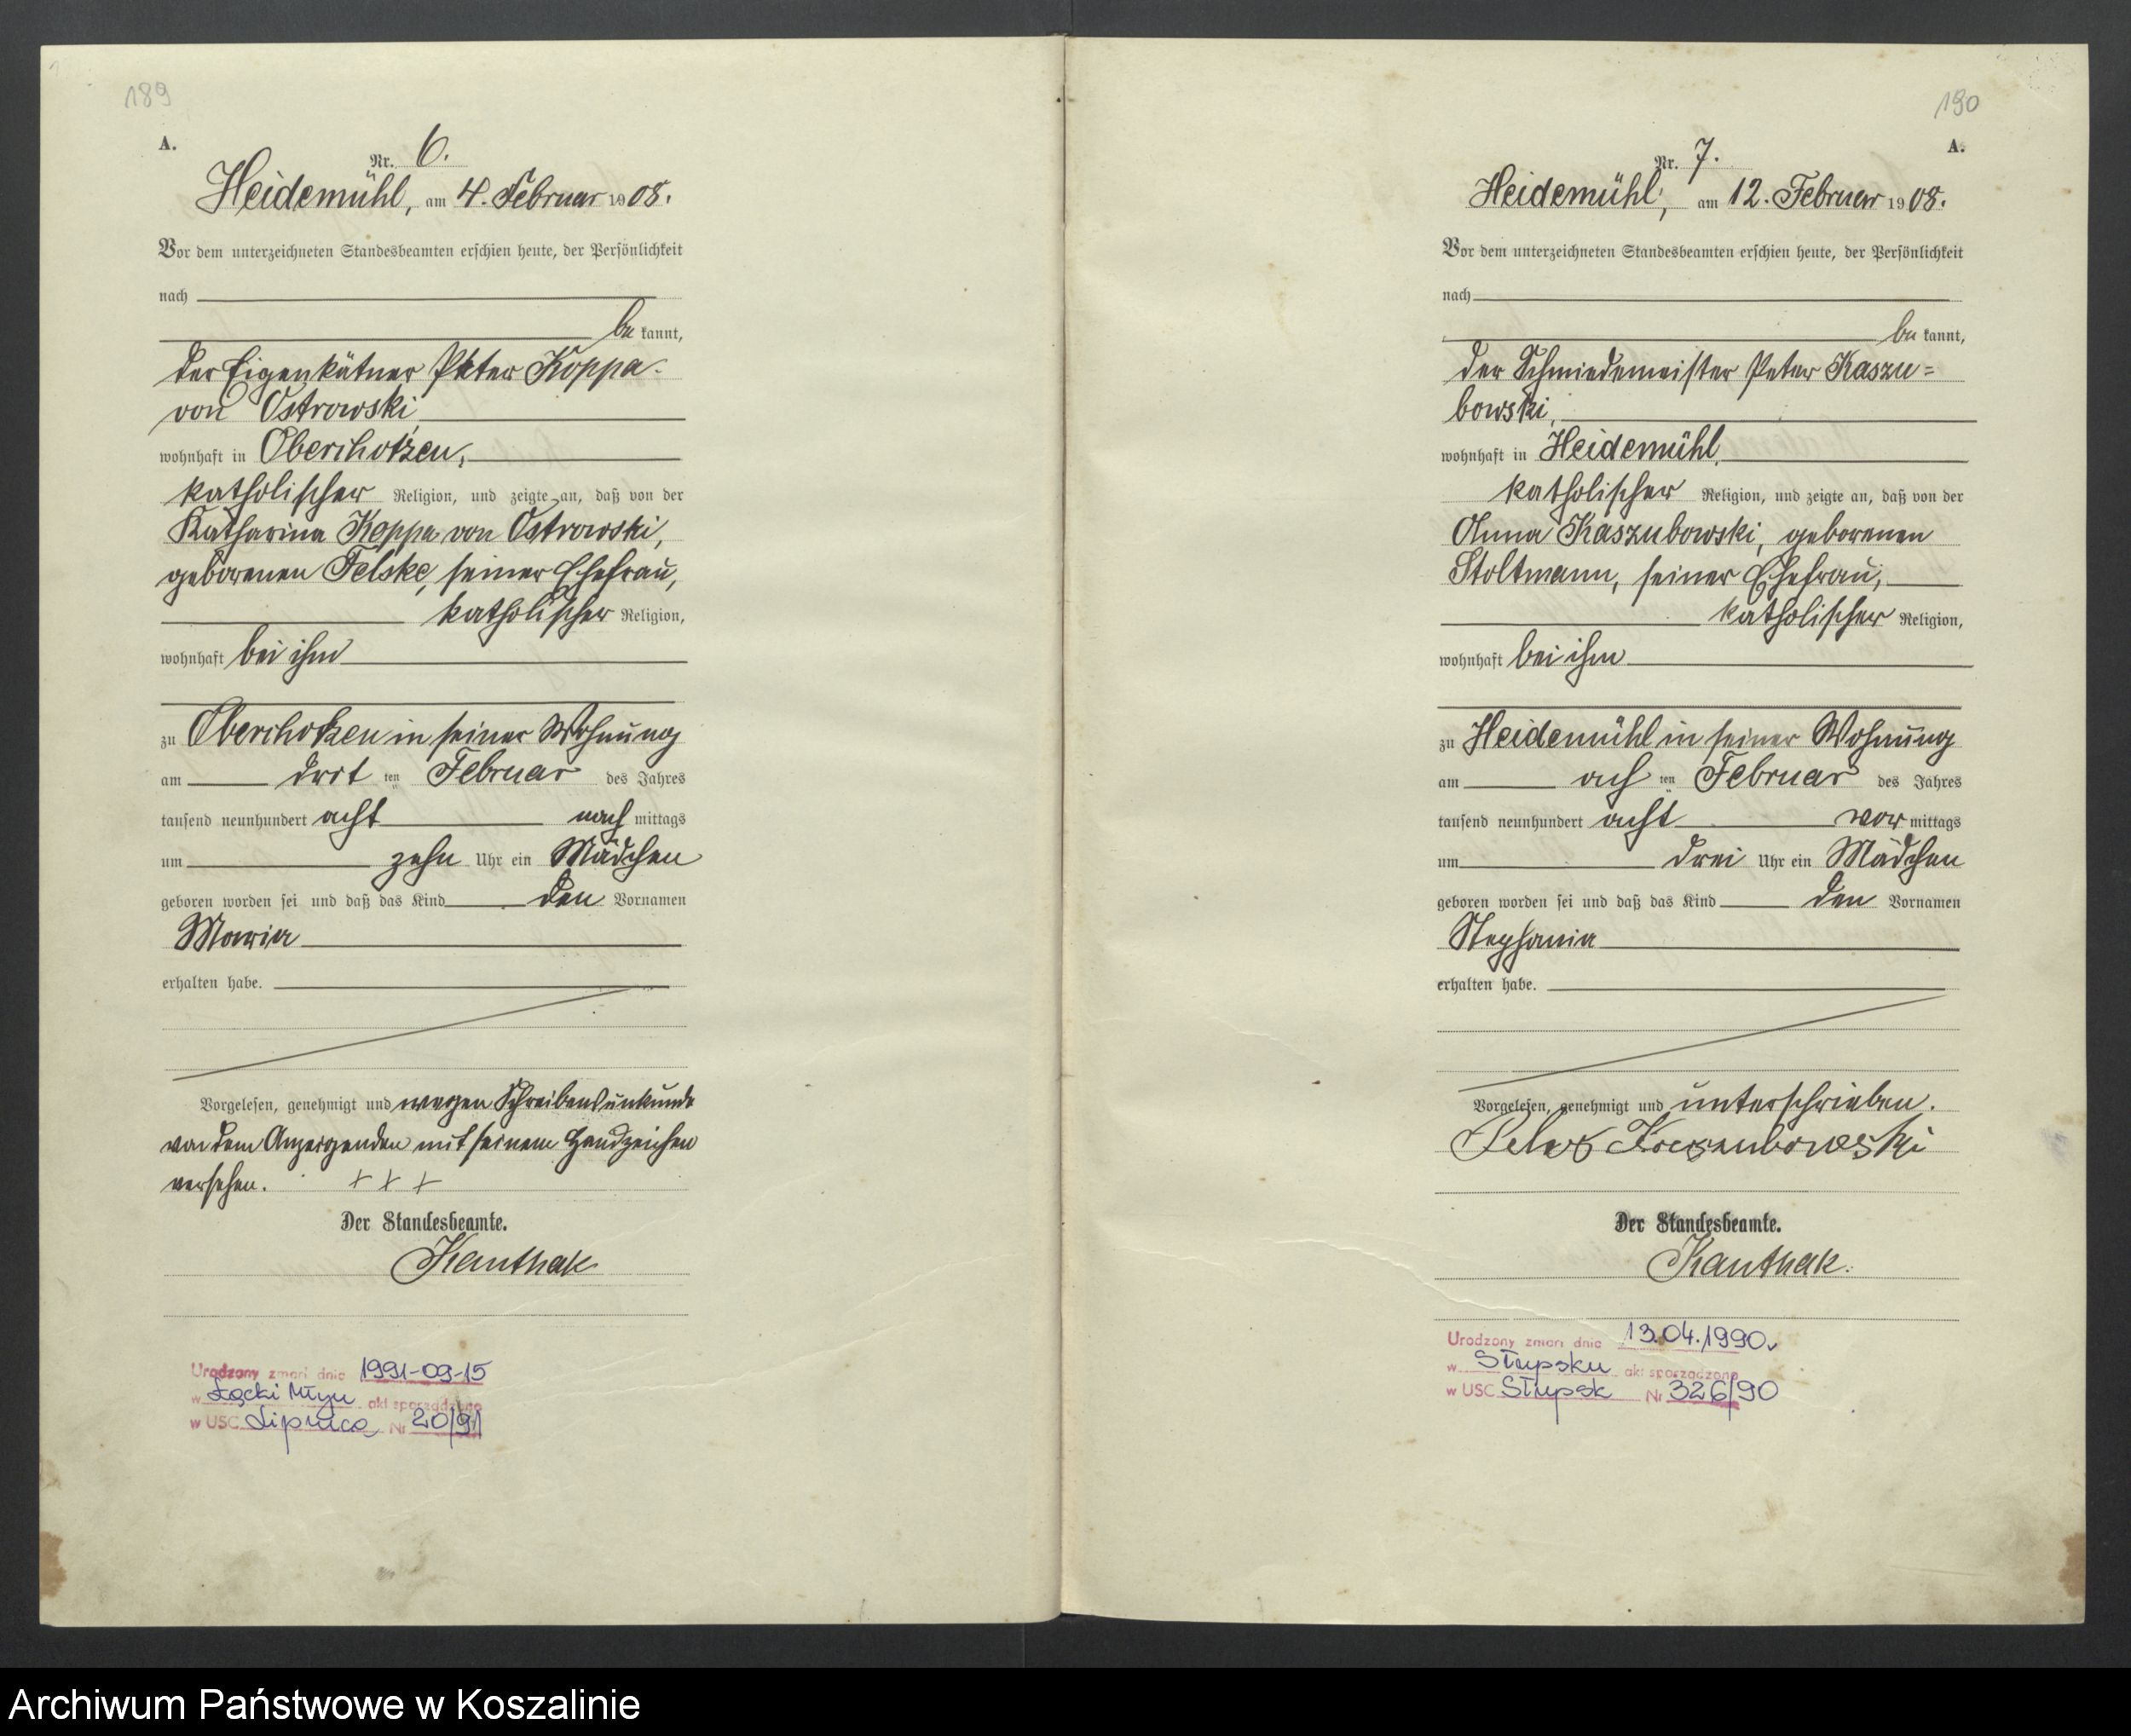 189
A.
Nr. 6.
Heidemühl, am 4. Februar 1908.
Vor dem unterzeichneten Standesbeamten erschien heute, der Persönlichkeit
nach
be kannt,
der Eigenkätner Peter Koppa
von Ostrowski
wohnhaft in Oberchotzen,
katholischer Religion, und zeigte an, daß von der
Katharina Koppa von Ostrowski,
geborenen Felske, seiner Ehefrau,
katholischer Religion,
wohnhaft bei ihm
zu Oberchotzen in seiner Wohnung
am drit ten Februar des Jahres
tausend neunhundert acht nach mittags
um zehn Uhr ein Mädchen
geboren worden sei und daß das Kind den Vornamen
Maria
erhalten habe.
Vorgelesen, genehmigt und wegen Schreibensunkunde
von dem Anzeigenden mit seinem Handzeichen
versehen. + + +
Der Standesbeamte.
Kanthak
Urodzony zmarł dnia 1991-09-15
w Łącki Młyn akt sporządzono
w USC Lipnica Nr 20/91
190
A.
Nr. 7.
Heidemühl, am 12. Februar 1908.
Vor dem unterzeichneten Standesbeamten erschien heute, der Persönlichkeit
nach
be kannt,
der Schmiedemeister Peter Kaszu=
bowski,
wohnhaft in Heidemühl,
katholischer Religion, und zeigte an, daß von der
Anna Kaszubowski, geborenen
Stoltmann, seiner Ehefrau,
katholischer Religion,
wohnhaft bei ihm
zu Heidemühl in seiner Wohnung
am ach ten Februar des Jahres
tausend neunhundert acht vor mittags
um drei Uhr ein Mädchen
geboren worden sei und daß das Kind den Vornamen
Stephania
erhalten habe.
Vorgelesen, genehmigt und unterschrieben.
Peter Kaszubowski
Der Standesbeamte.
Kanthak.
Urodzony zmarł dnia 13.04.1990.
w Słupsku akt sporządzono
w USC Słupsk Nr 326/90
Archiwum Państwowe w Koszalinie